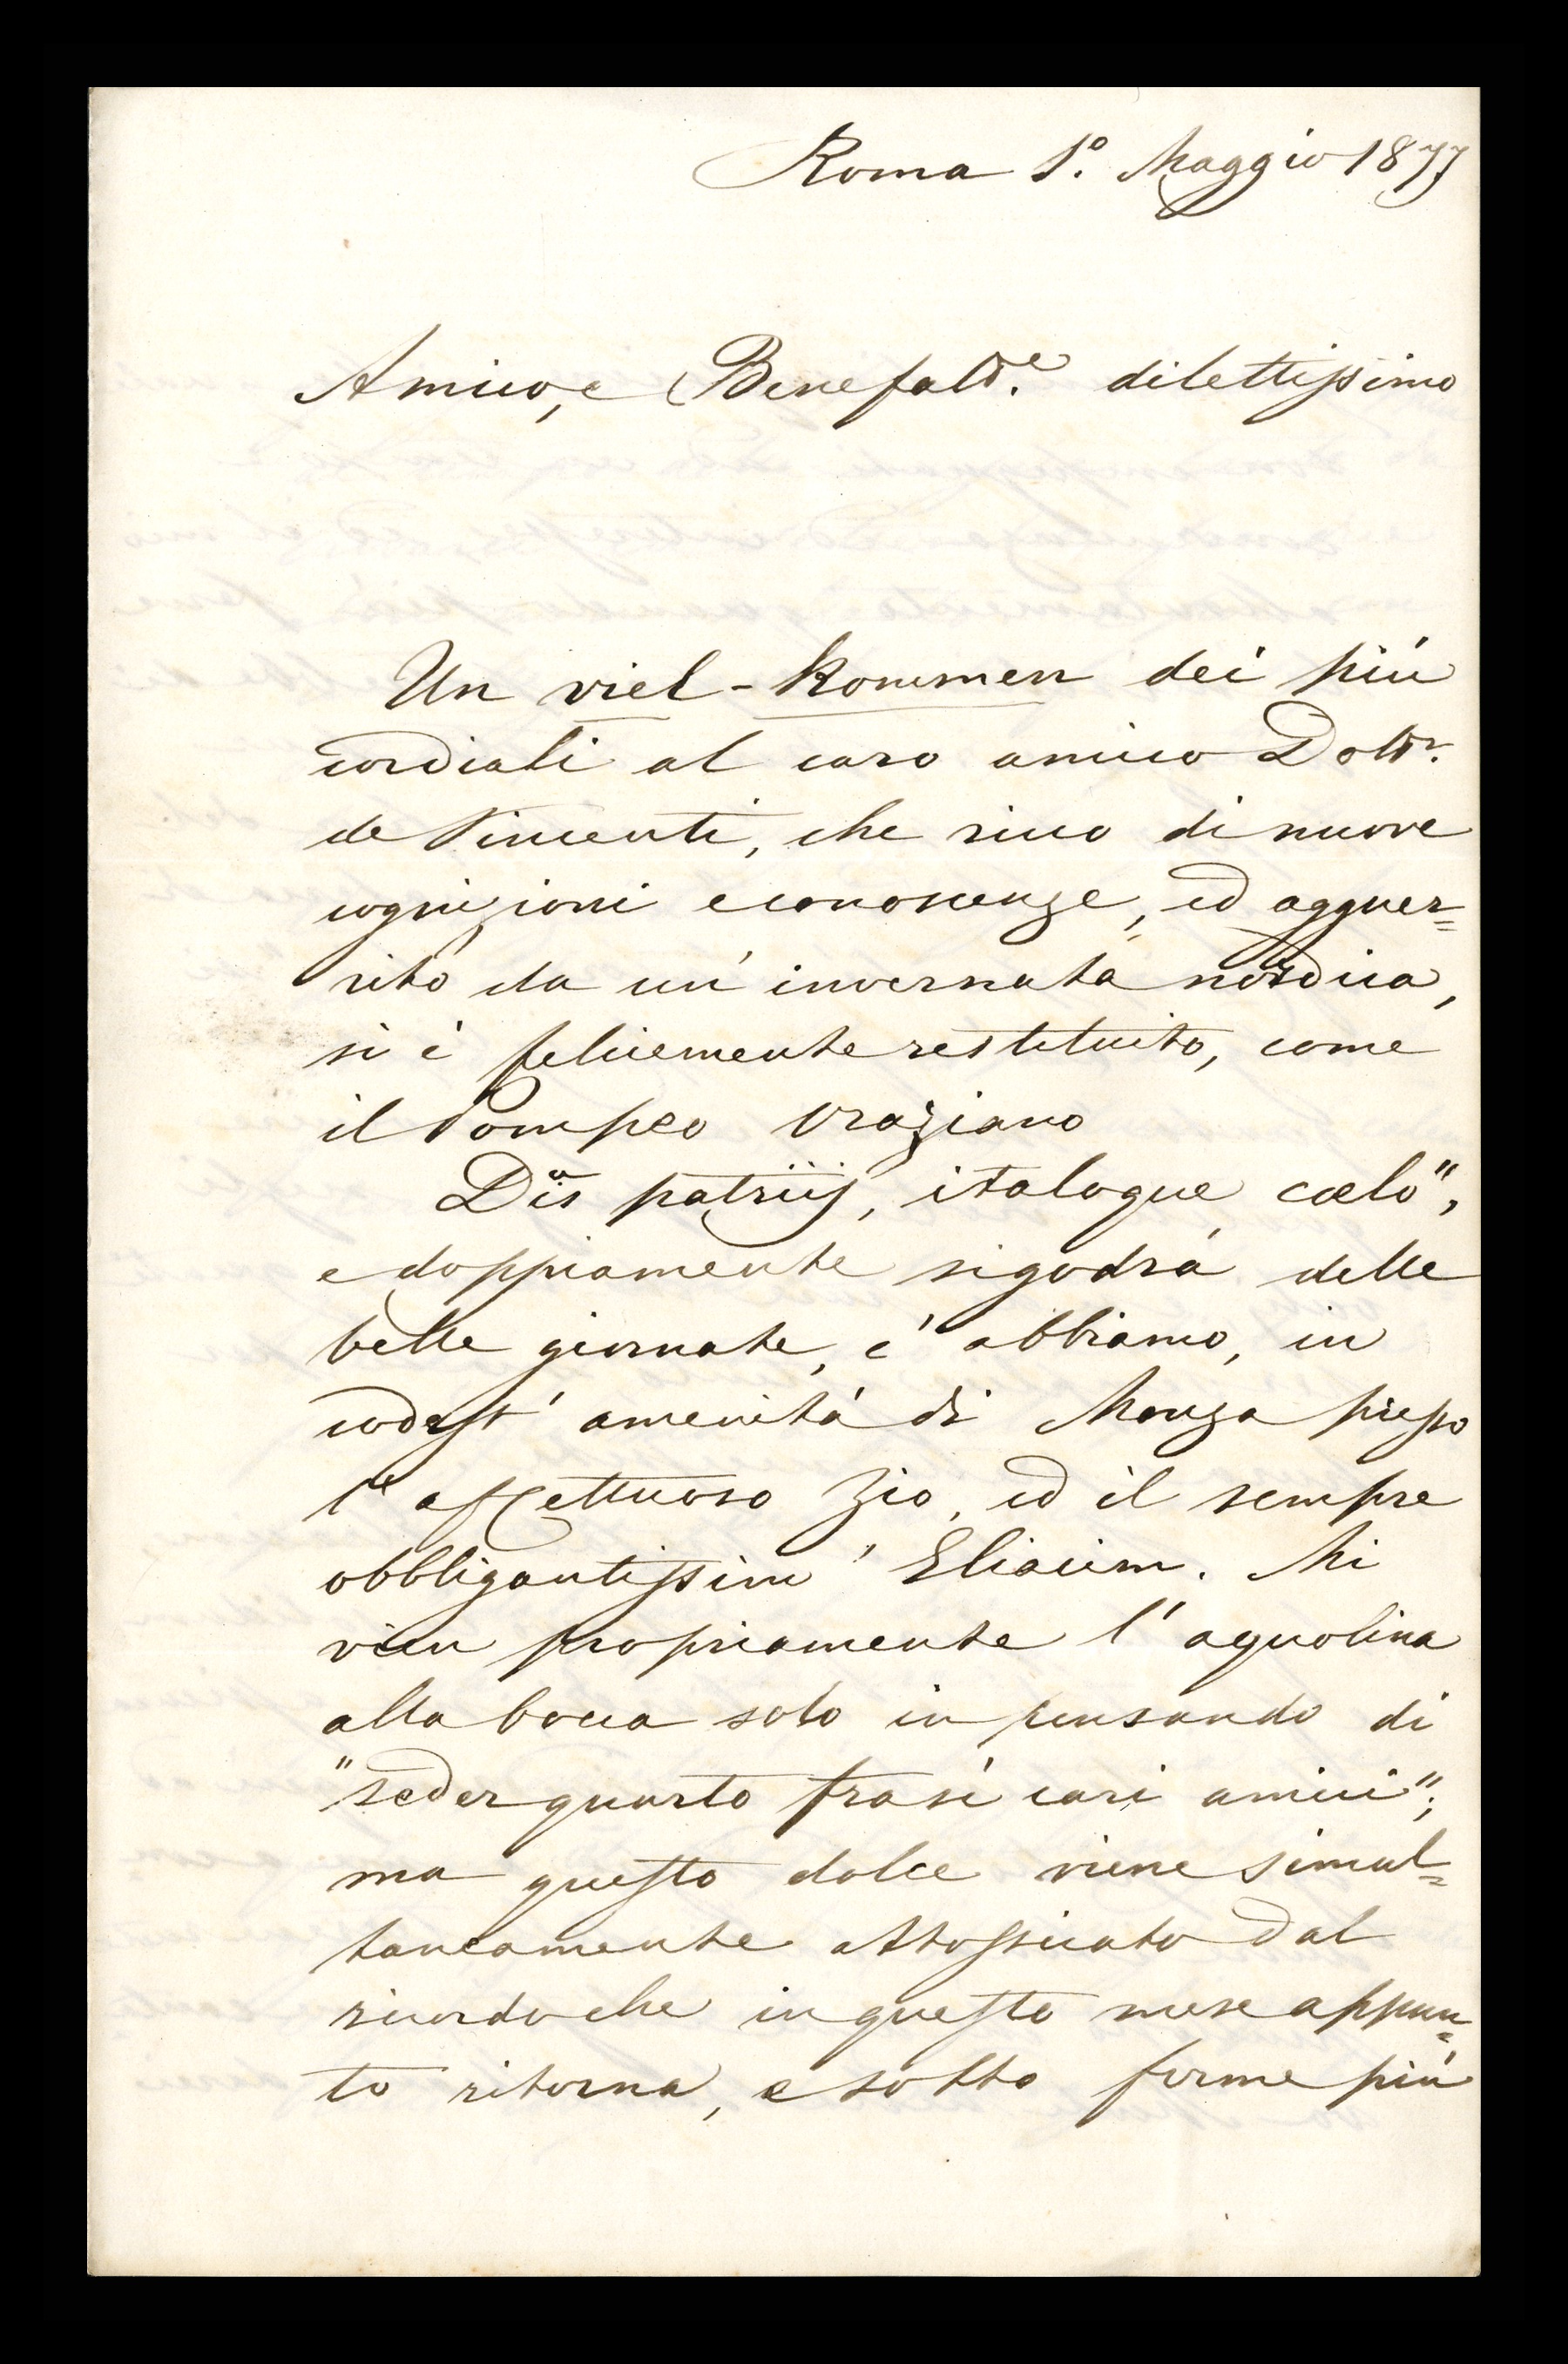 Roma 1º. Maggio 1877
Amico, e Benefatt.e dilettissimo
Un viel-kommen dei più
cordiali al caro amico Dottr.
de Vincenti, che ricco di nuove
cognizioni e conoscenze, ed agguer=
rito da un' invernata nordica,
si è felicemente restituito, come
il Pompeo Oraziano
Dis patriis, italoque cœlo",
e doppiamente si godrà delle
belle giornate, ch' abbiamo, in
codest' amenità di Monza presso
l' affettuoso Zio, ed il sempre
obbligantissim' Eliacim. Mi
vien propriamente l' aquolina
alla bocca solo in pensando di
"seder quarto tra sì cari amici";
ma questo dolce viene simul=
taneamente attossicato dal
ricordo che in questo mese appun=
to ritorna, e sotto forme più